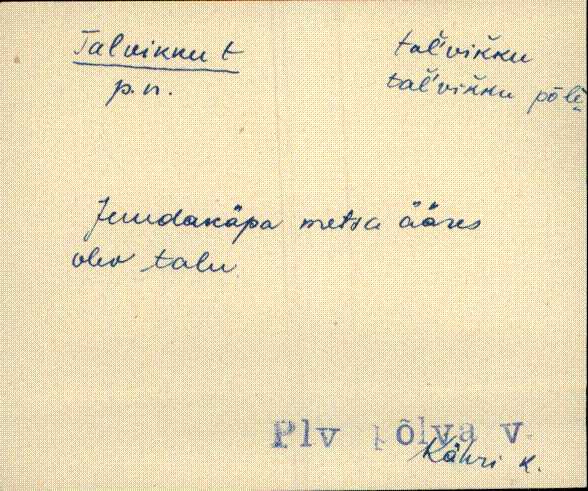 Talvikku t
p.n.
tal'vikku
tal'vikku põli͔
Juudakäpa metsa ääres
olev talu
Plv põlva v.
Kähri k.